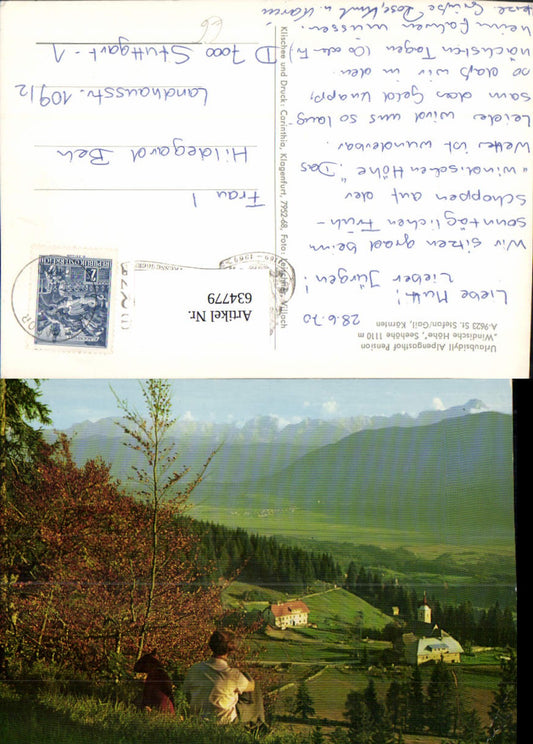 Urlaubsidyll Alpengasthof Pension
"Windische Höhe", Seehöhe 1110 m
A-9623 St. Stefan/Gail, Kärnten
28.6.70
Liebe Mutti!
Lieber Jürgen!
Wir sitzen grad beim
sonntäglichen Früh-
schoppen auf der
"windischen Höhe". Das
Wetter ist wunderbar.
Leider wird uns so lang-
sam das Geld knapp,
so daß wir in den
nächsten Tagen
heim fahren müssen.
Grüße Rose, Kurt u. Karin
Klischee und Druck: Carinthia, Klagenfurt, 7952-68, Foto: Villach
REPUBLIK ÖSTERREICH
2
Artikel Nr.
634779
Frau
Hildegard Beh
Landhausstr. 109/2
D 7000 Stuttgart-1